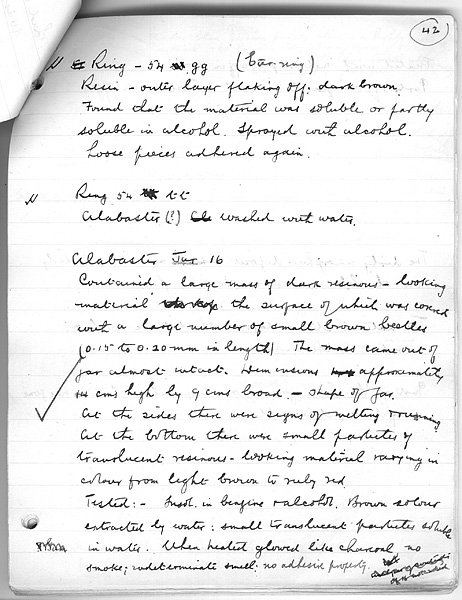 42
N Ring - 54 gg (Ear-ring)
Resin - outer layer flaking off. dark brown.
Found that the material was soluble or partly
soluble in alcohol. Sprayed with alcohol.
Loose pieces adhered again.
N Ring 54 tt
Alabaster (?) washed with water.
Alabaster Jar 16
Contained a large mass of dark resinous-looking
material the surface of which was covered
with a large number of small brown beetles
(0.15 to 0.20 mm in length) The mass came out of
jar almost intact. Dimensions approximately
14 cms high by 9 cms broad. - shape of jar
At the sides there were signs of melting running
At the bottom there were small particles of
translucent resinous-looking material varying in
colour from light brown to ruby red.
Tested:- Insol. in benzine & alcohol. Brown colour
extracted by water: small translucent particles soluble
in water. When heated glowed like charcoal no
smoke; indeterminate smell; no adhesive property.